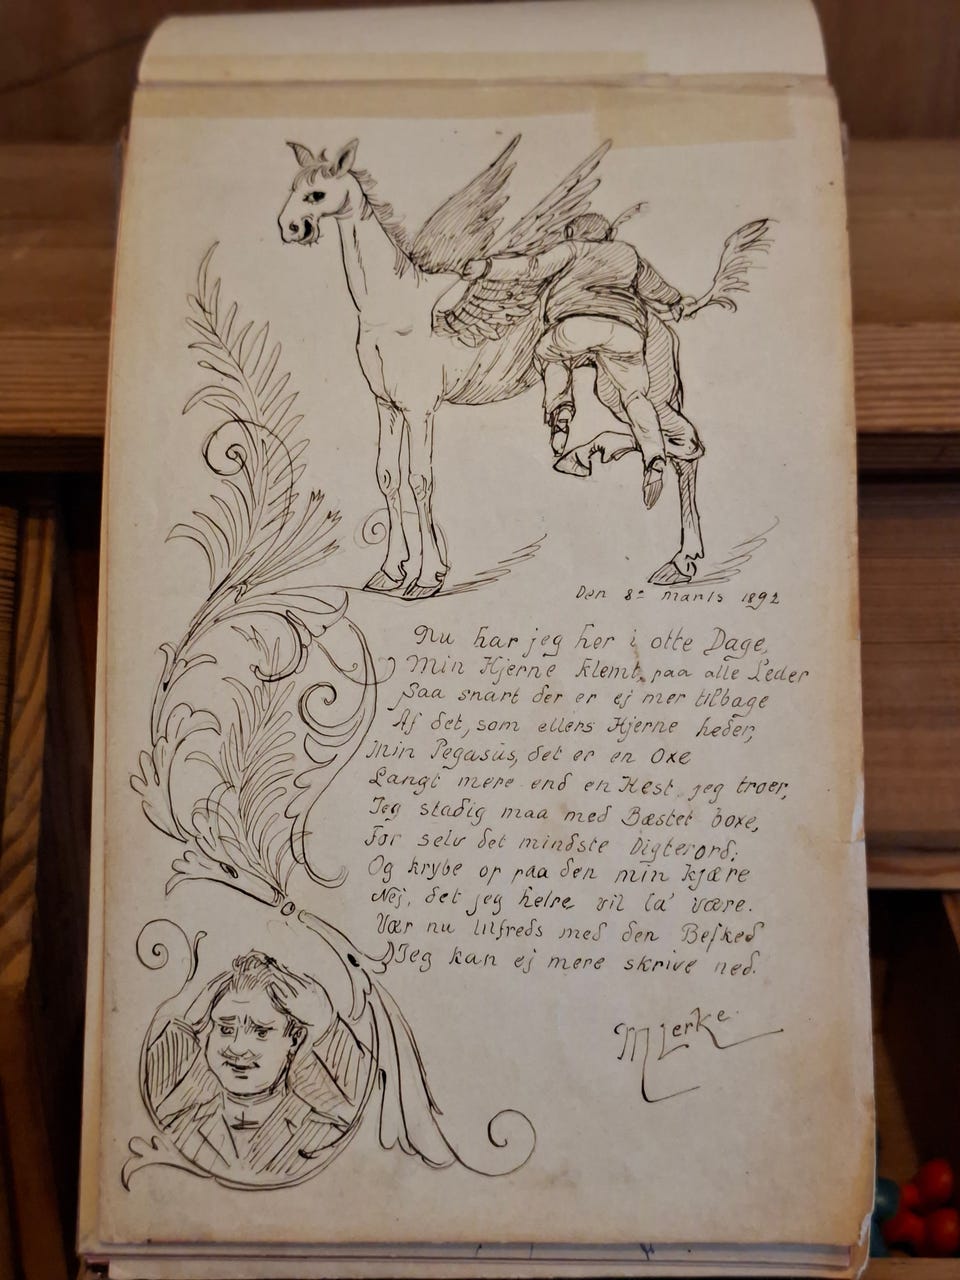 Den 8de Marts 1892
Nu har jeg her i otte Dage,
Min Hjerne klemt paa alle Leder
Saa snart der er ej mer tilbage
Af det, som ellers Hjerne heder,
Min Pegasus, det er en Oxe
Langt mere end en Hest jeg troer,
Jeg stadig maa med Bæstet boxe,
For selv det mindste Digterord;
Og krybe op paa den min Kjære
Nej, det jeg helre vil la' være.
Vær nu tilfreds med den Besked
Jeg kan ej mere skrive ned.
M Lerke